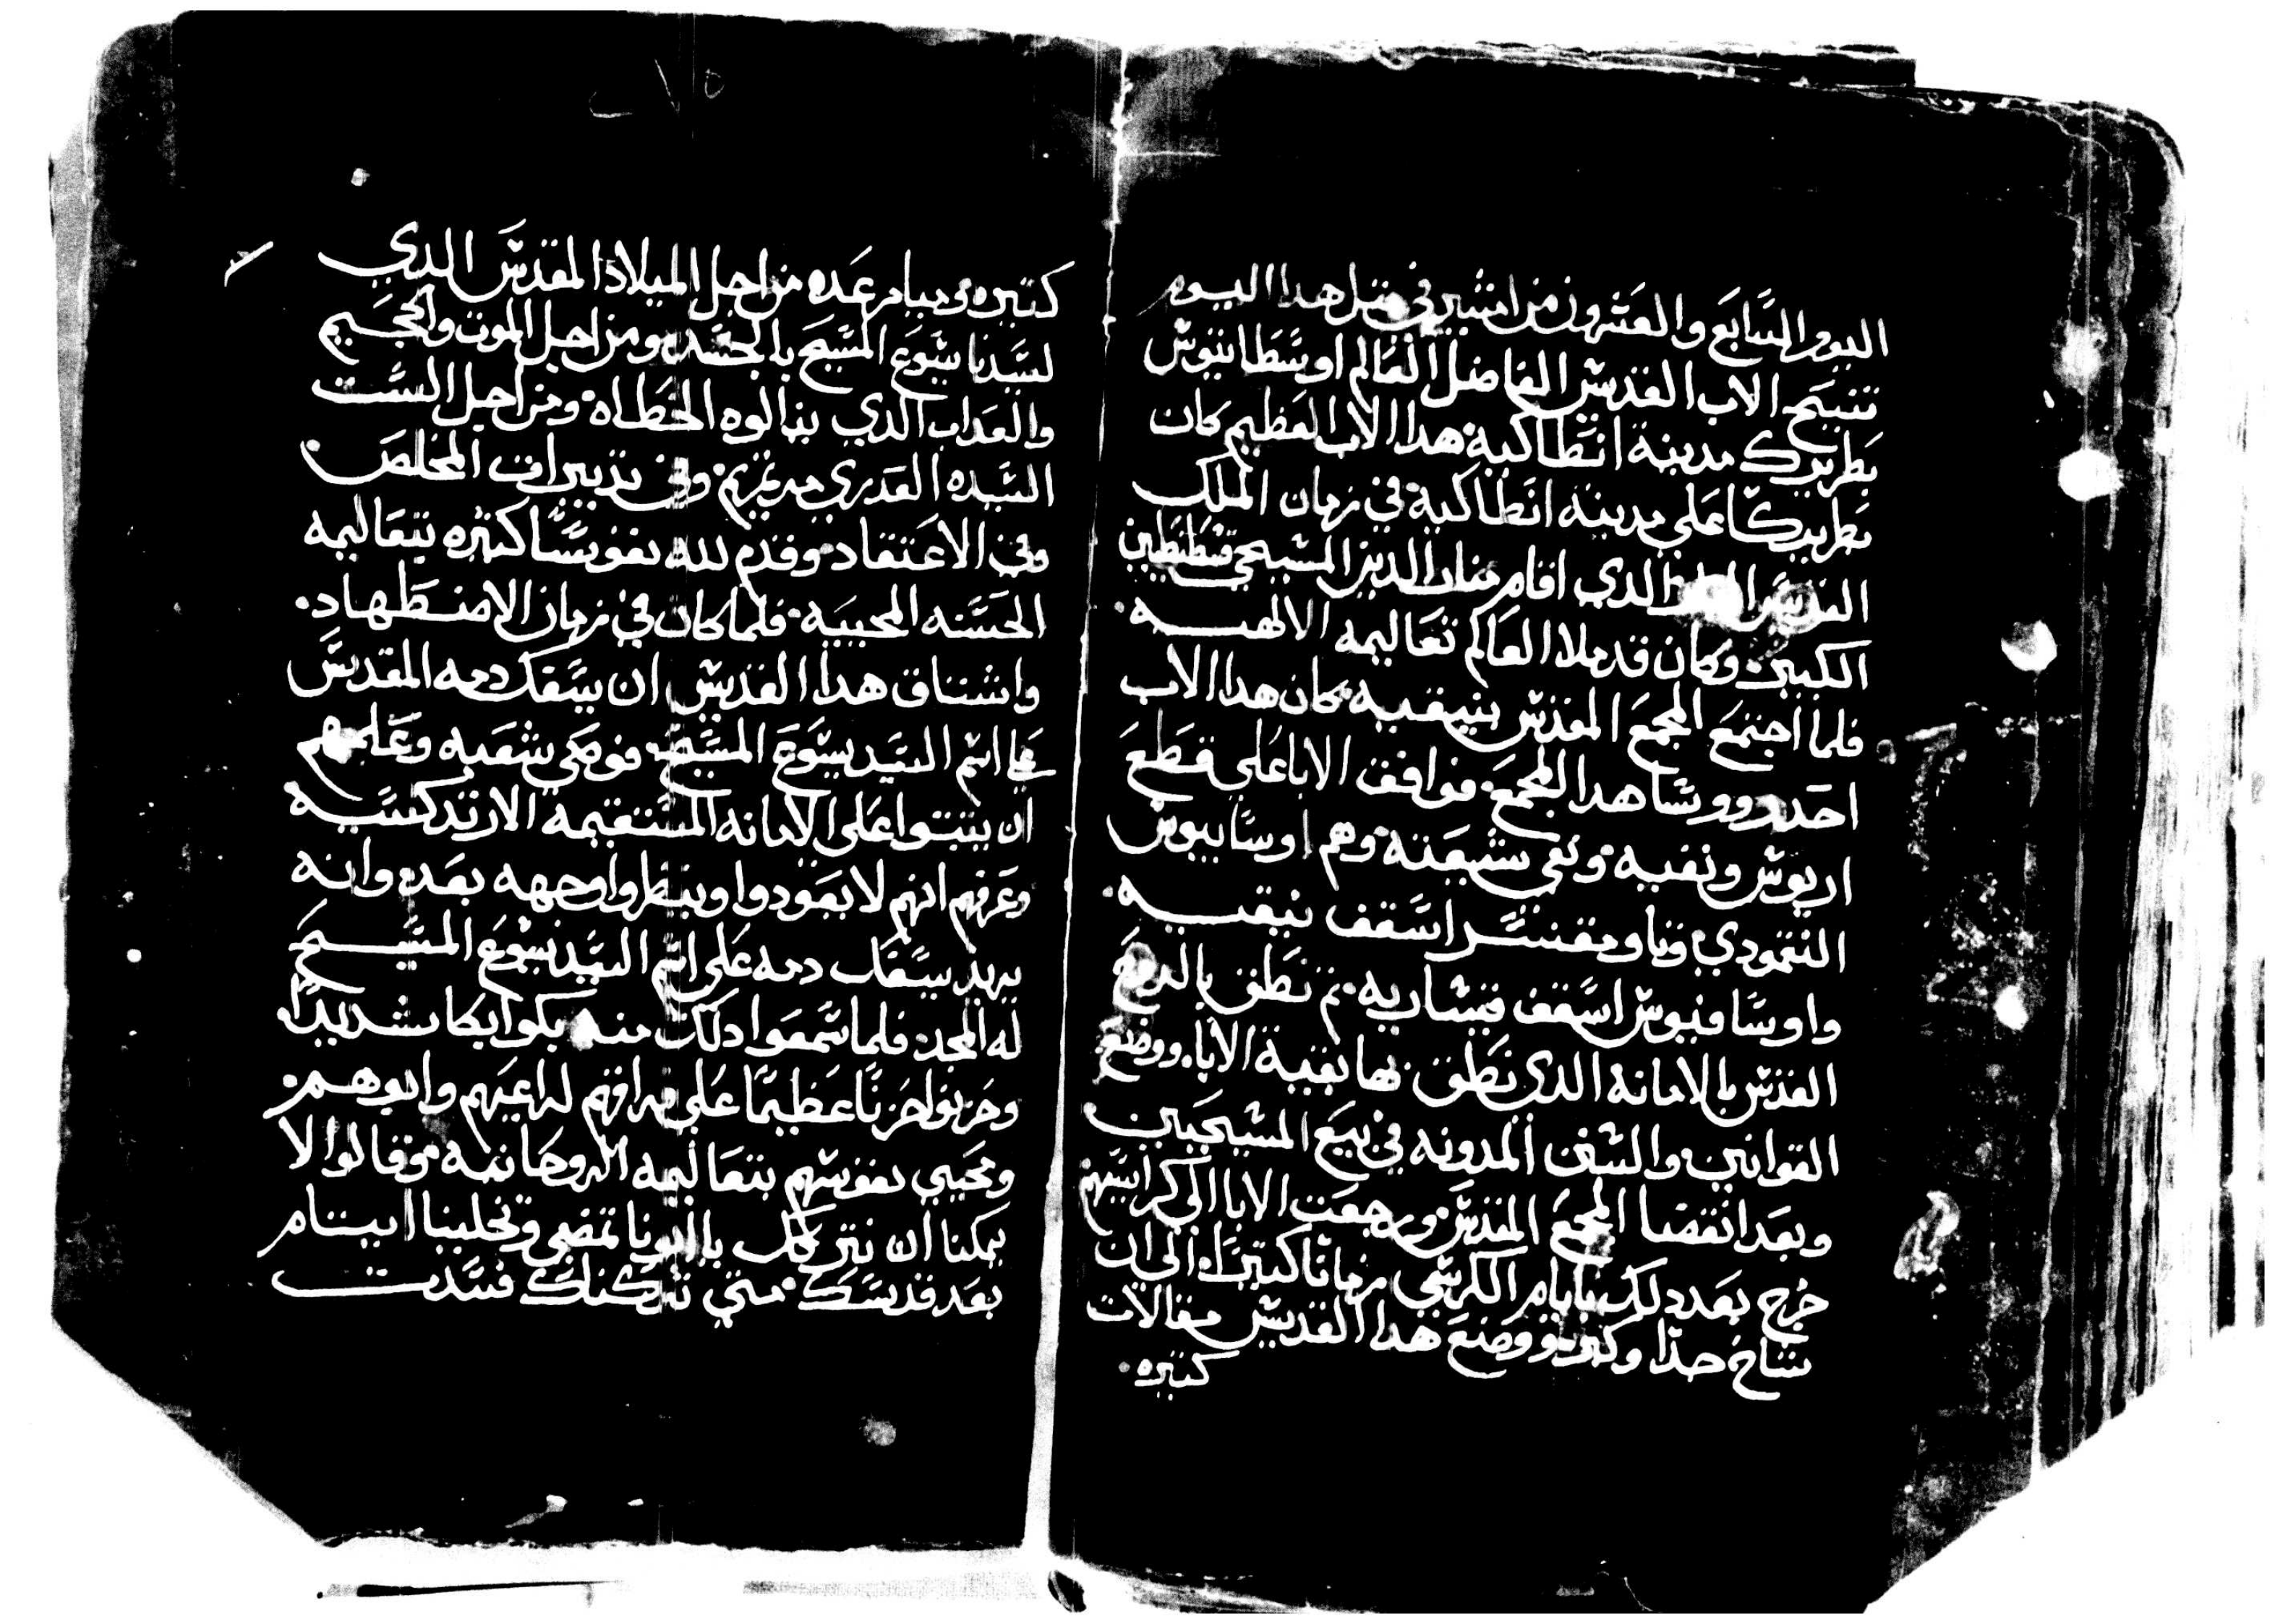 اليوم السابع والعشرون من امشير في مثل هدا اليوم
تنيح الاب القديس الفاضل العالم اوسطاتيوس
بطريرك مدينة انطاكية هدا الاب العظيم كان
بطريركا على مدينه انطاكية في زمان الملك
القديس الدي اقام منار الدين المسيحي قسطنطين
الكبير وكان قد ملا العالم تعاليمه الالهيه
فلما اجتمع المجمع المقدس بنيقيه كان هدا الاب
احد رووسا هدا المجمع فوافق الابا على قطع
اريوس ونفيه ونفي شيعته وهم اوسابيوس
النقمودي وتاومقنس اسقف نيقيه
واوسافيوس اسقف قيساريه ثم نطق بالروح
القدس بالامانه الدي نطق بها بقية الابا ووضع
القوانين والسنن المدونه في بيع المسيحيين
وبعد انقضا المجمع المقدس ورجعت الابا الى كراسيهم
خرج بعد دلك بايام الكرسي زمانا كتيرا الى ان
شاخ جدا وكبر ووضع هدا القديس مقالات
كتيره
كتيره وميامر عده من اجل الميلاد المقدس الدي
لسيدنا يسوع المسيح بالجسد ومن اجل الموت والجحيم
والعداب الدي ينالوه الخطاه ومن اجل الست
السيده العدري مرتمريم وفي تدبيرات المخلص
وفي الاعتقاد وقدم لله نفوسا كتيره بتعاليمه
الحسنه المحييه فلما كان في زمان الاضطهاد
واشتاق هدا القديس ان يسفك دمه المقدس
على اسم السيد يسوع المسيح فوصى شعبه وعلمهم
ان يتبتوا على الامانه المستقيمه الارتدكسيه
وعرفهم انهم لا يعودوا وينظروا وجهه بعد وانه
يريد يسفك دمه على اسم السيد يسوع المسيح
له المجد فلما سمعوا دلك منه بكوا بكا شديدا
وحزنوا حزنا عظيما على فراقهم لراعيهم وابوهم
ومحيي نفوسهم بتعاليمه الروحانيه وقالوا لا
يمكنا ان نتركك يا ابونا تمضي وتخلينا ايتام
بعد قدسك متي تركناك فسدت